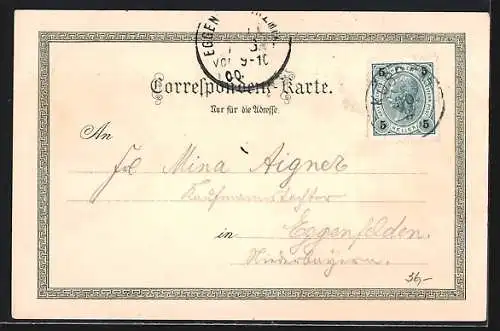 EGGEN
VOR 9-10
00
Correspondenz-Karte.
Nur für die Adresse
5 5
An
Frl Mina Aigner
Kaufmannstochter
in Eggenfelden.
Niederbayern.
36,-